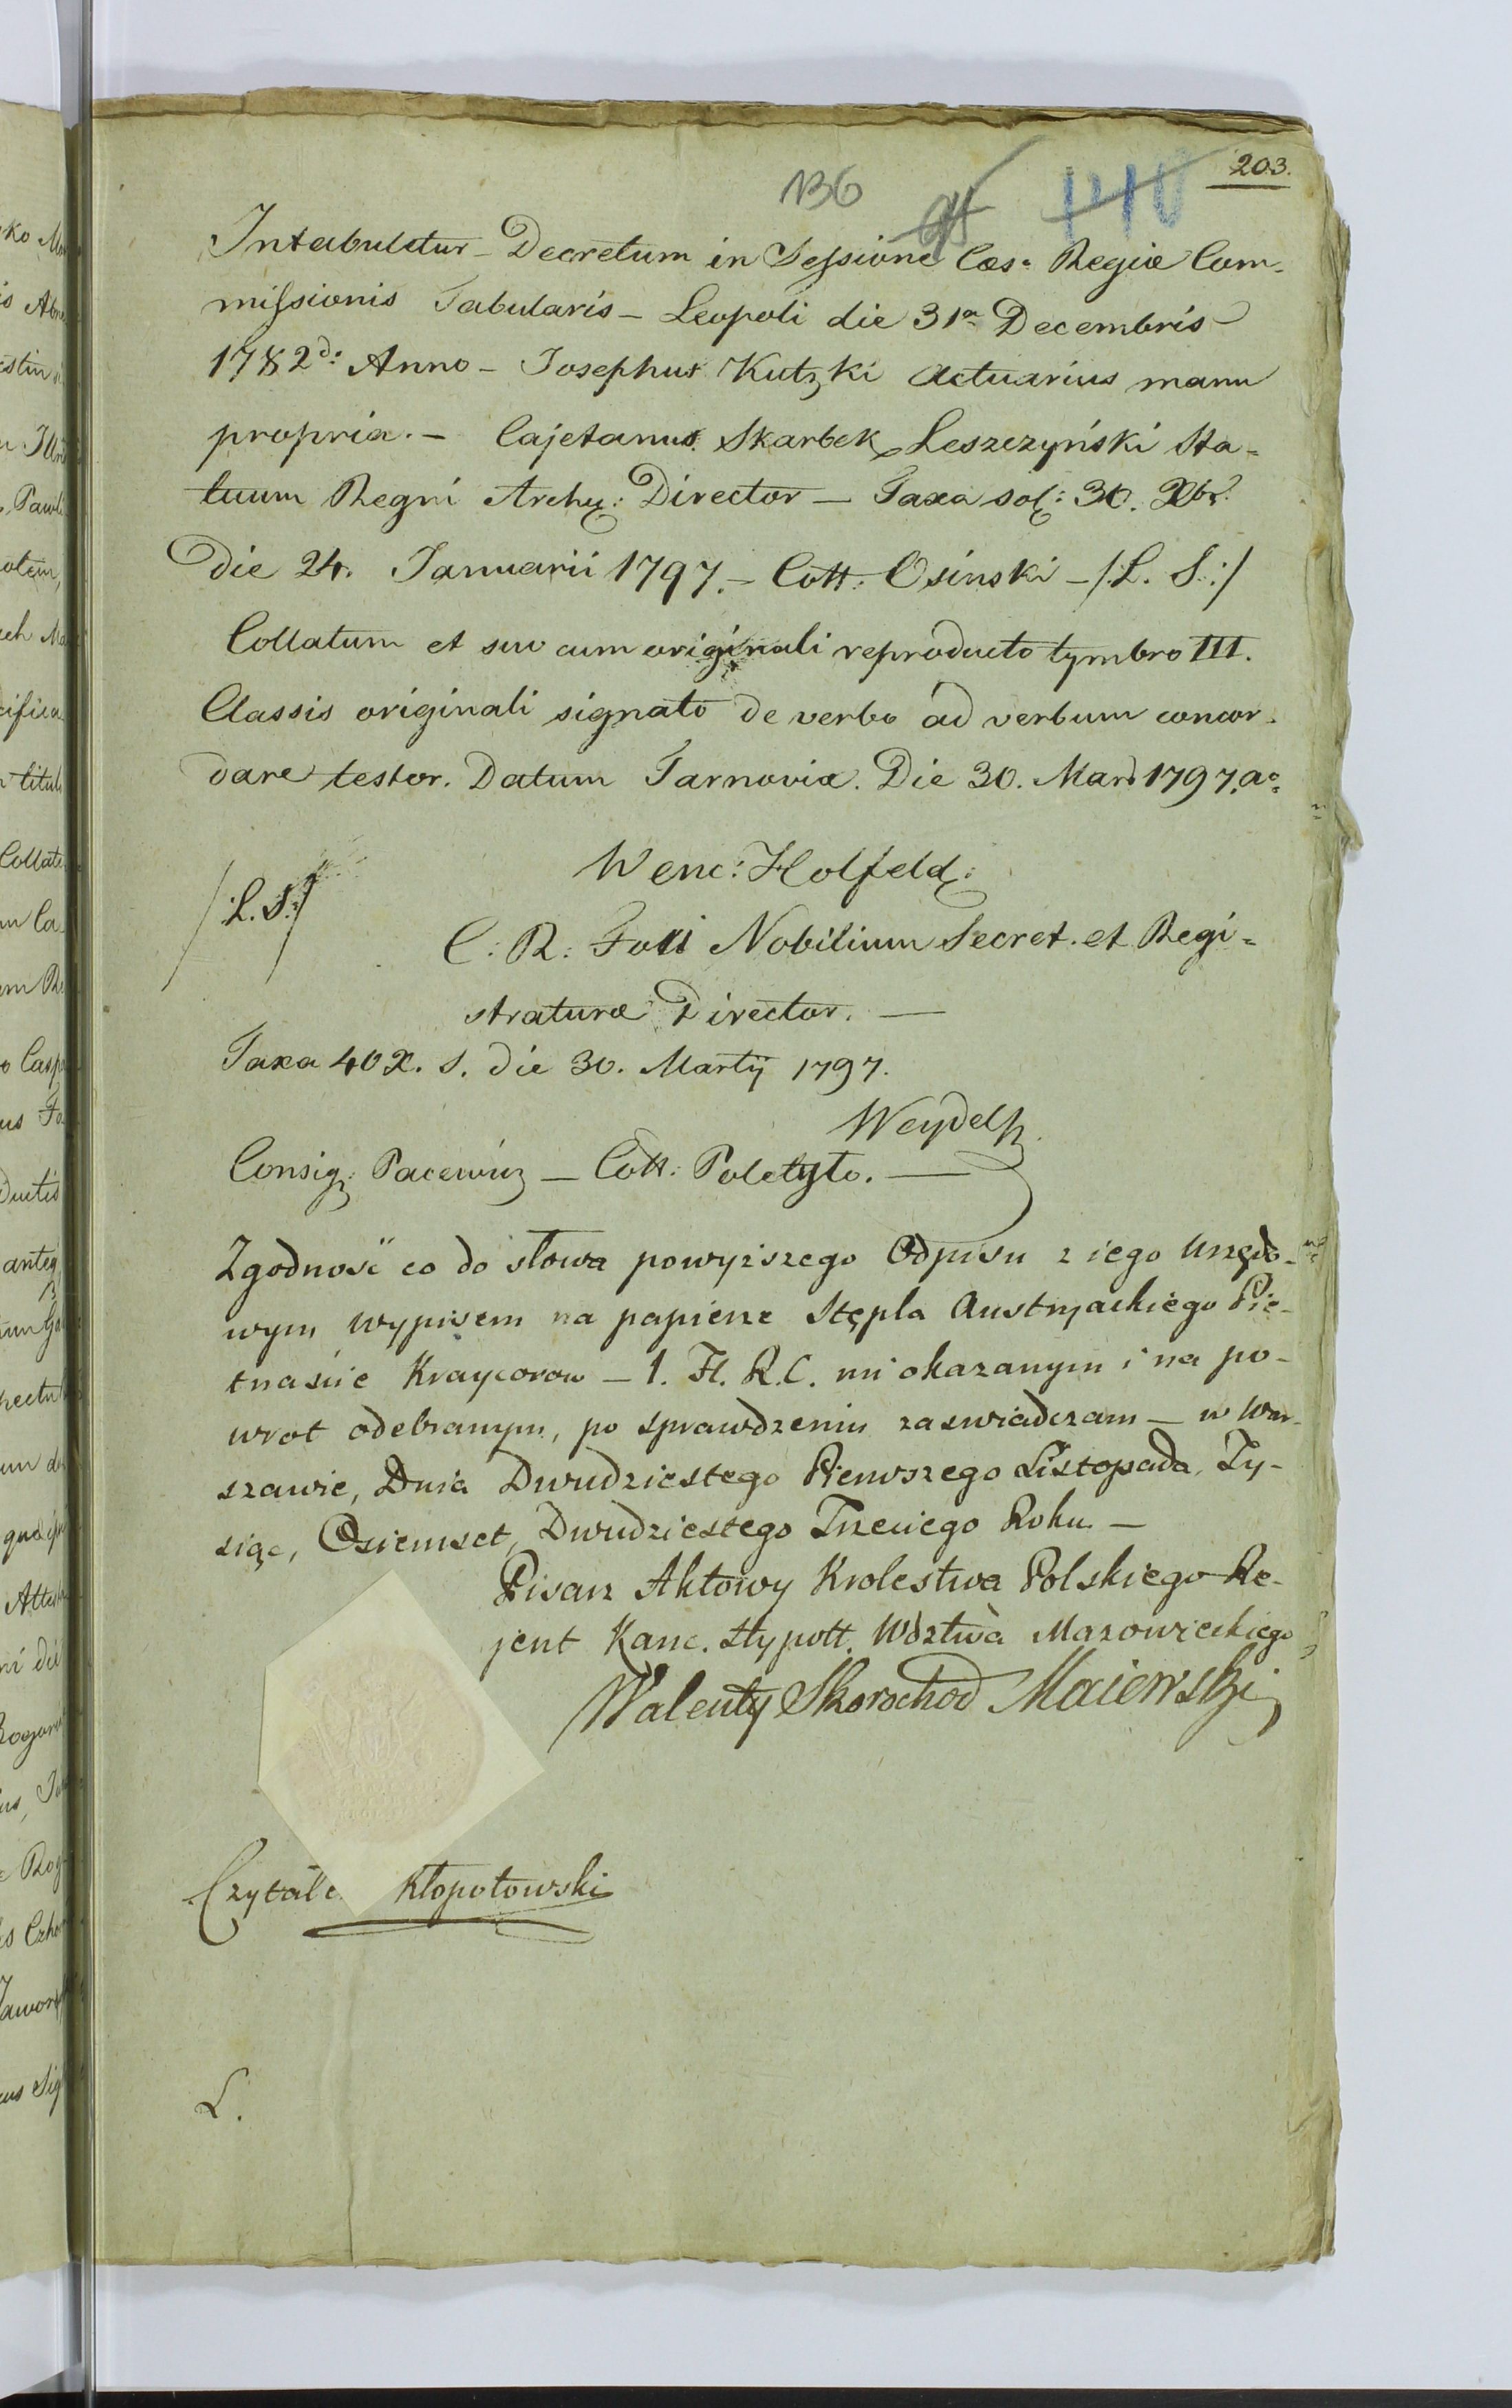 203.
136
95
140
Intabuletur – Decretum in Sessione Cæs: Regiæ Com-
missionis Tabularis – Leopoli die 31a Decembris
1782do: Anno – Josephus Kutzki Actuarius manu
propria. – Cajetanus Skarbek Leszczyński Sta-
tuum Regni Archy: Director – Taxa sol: 30. Xbr.
Die 24. Januarii 1797. – Coll: Osinski – /L. S:/
Collatum et suo cum originali reproducto tymbro III.
Classis originali signato de verbo ad verbum concor-
dare testor. Datum Tarnoviæ. Die 30. Marti 1797. ao:
Wenc: Holfeld:
/:L. S:/
C: R: Fori Nobilium Secret. et Regi-
straturæ Director. —
Taxa 40 X. s. die 30. Martij 1797.
Weydel
Consig: Pacewicz – Coll: Poletyło. —
Zgodność co do słowa powyższego Odpisu z iego Urzędo-
wym wypisem na papierze Stępla Austryackiego Pie-
tnaście Kraycorow – 1. Fl. R. C. mi okazanym i na po-
wrot odebranym, po sprawdzeniu zaswiadczam – w War-
szawie, Dnia Dwudziestego Pierwszego Listopada, Ty-
siąc, Osiemset, Dwudziestego Trzeciego Roku –
Pisarz Aktowy Krolestwa Polskiego Re-
jent Kanc. Hypott. Wdztwa Mazowieckiego
Walenty Skorochod Maiewski
Czytałe Kłopotowski
L.